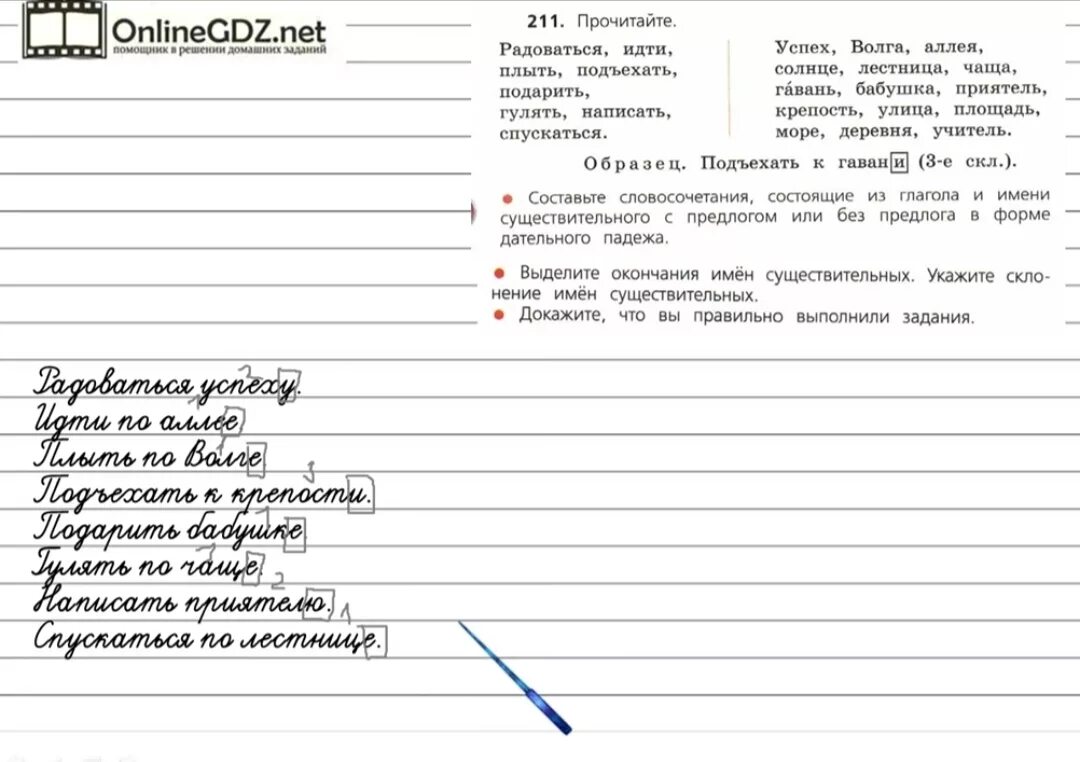 OnlineGDZ.net
помощник в решении домашних заданий
211. Прочитайте.
Радоваться, идти,
плыть, подъехать,
подарить,
гулять, написать,
спускаться.
Успех, Волга, аллея,
солнце, лестница, чаща,
га́вань, бабушка, приятель,
крепость, улица, площадь,
море, деревня, учитель.
Образец. Подъехать к гавани (3-е скл.).
• Составьте словосочетания, состоящие из глагола и имени
существительного с предлогом или без предлога в форме
дательного падежа.
• Выделите окончания имён существительных. Укажите скло-
нение имён существительных.
• Докажите, что вы правильно выполнили задания.
2
Радоваться успеху.
1
Идти по аллее
1
Плыть по Волге
3
Подъехать к крепости.
1
Подарить бабушке
1
Гулять по чаще
2
Написать приятелю.
1
Спускаться по лестнице.